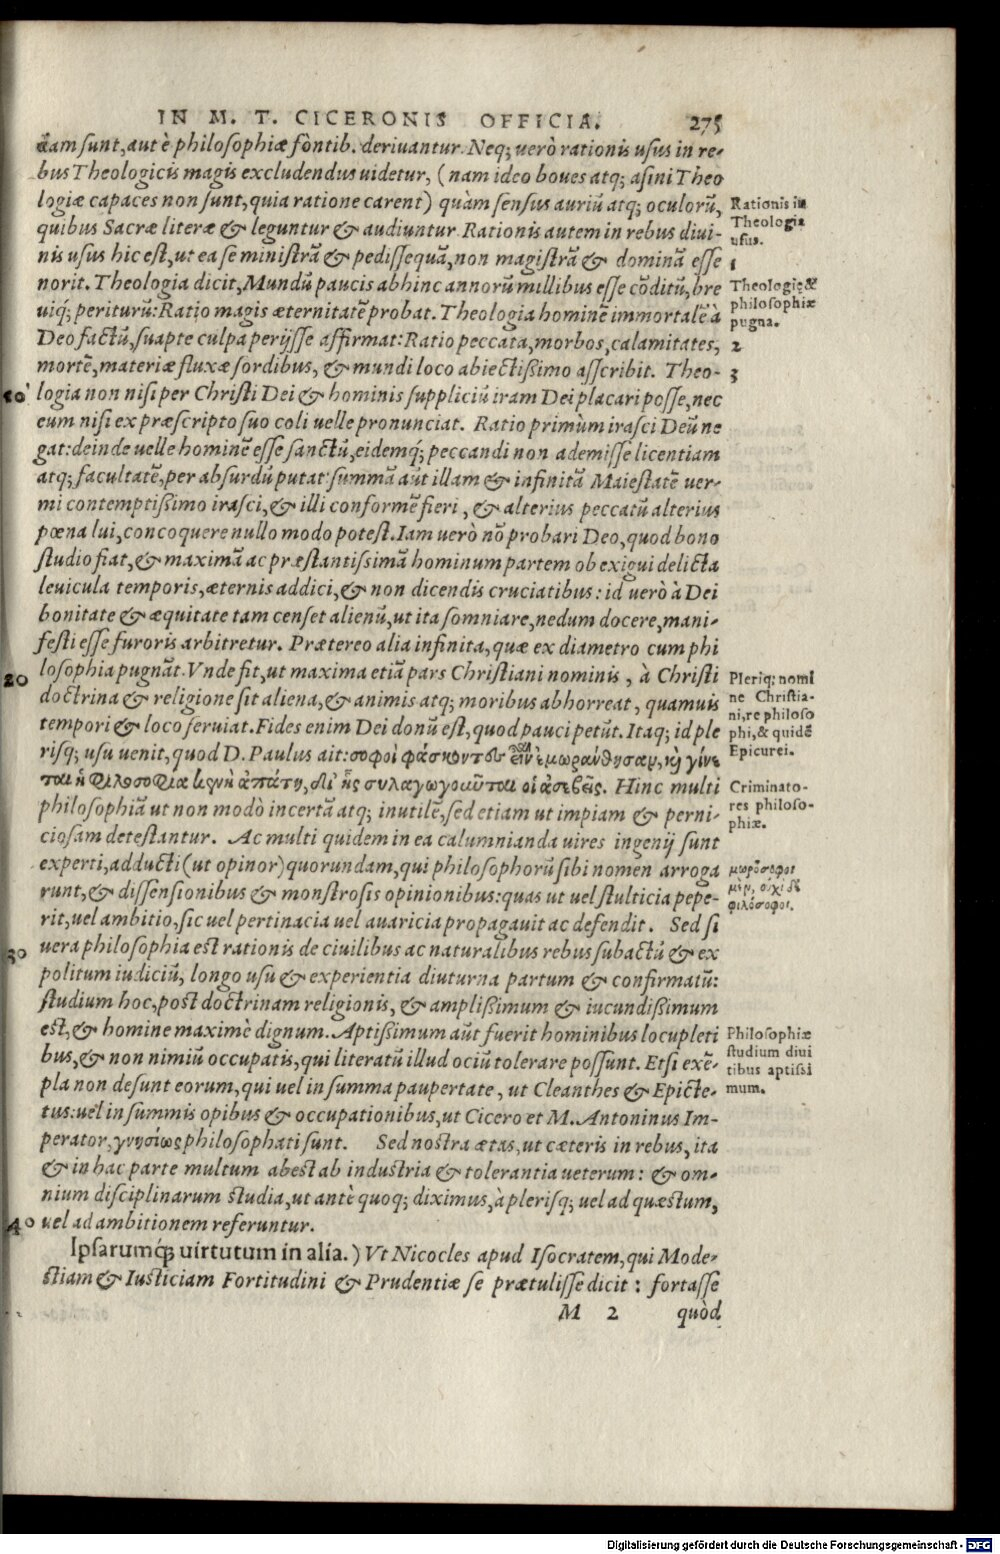 IN M. T. CICERONIS OFFICIA. 275
dam sunt, aut è philosophiæ fontib. deriuantur. Neq; uerò rationis usus in re-
bus Theologicis magis excludendus uidetur, (nam ideo boues atq; asini Theo
logiæ capaces non sunt, quia ratione carent) quàm sensus auriũ atq; oculorũ,
quibus Sacræ literæ & leguntur & audiuntur. Rationis autem in rebus diui-
nis usus hic est, ut ea se ministrã & pedissequã, non magistrã & dominã esse
norit. Theologia dicit, Mundũ paucis abhinc annorũ millibus esse cõditũ, bre
uiq; periturũ: Ratio magis æternitatẽ probat. Theologia hominẽ immortalẽ à
Deo factũ, suapte culpa perijsse affirmat: Ratio peccata, morbos, calamitates,
mortẽ, materiæ fluxæ sordibus, & mundi loco abiectißimo asscribit. Theo-
logia non nisi per Christi Dei & hominis suppliciũ iram Dei placari posse, nec
eum nisi ex præscripto suo coli uelle pronunciat. Ratio primùm irasci Deũ ne
gat: deinde uelle hominẽ esse sanctũ, eidemq́; peccandi non ademisse licentiam
atq; facultatẽ, per absurdũ putat: summã aũt illam & infinitã Maiestatẽ uer-
mi contemptißimo irasci, & illi conformẽ fieri, & alterius peccatũ alterius
pœna lui, concoquere nullo modo potest. Iam uerò nõ probari Deo, quod bono
studio fiat, & maximã ac præstantissimã hominum partem ob exigui delicta
leuicula temporis, æternis addici, & non dicendis cruciatibus: id uerò à Dei
bonitate & æquitate tam censet alienũ, ut ita somniare, nedum docere, mani-
festi esse furoris arbitretur. Prætereo alia infinita, quæ ex diametro cum phi
losophia pugnãt. Vnde fit, ut maxima etiã pars Christiani nominis, à Christi
doctrina & religione sit aliena, & animis atq; moribus abhorreat, quamuis
tempori & loco seruiat. Fides enim Dei donũ est, quod pauci petũt. Itaq; id ple
risq; usu uenit, quod D. Paulus ait: σοφοὶ φάσκοντες εἶναι ἐμωράνθησαν, καὶ γίνε
ται ἡ φιλοσοφία κενὴ ἀπάτη, δι᾽ ἧς συλαγωγοῦνται οἱ ἀσεβεῖς. Hinc multi
philosophiã ut non modò incertã atq; inutilẽ, sed etiam ut impiam & perni-
ciosam detestantur. Ac multi quidem in ea calumnianda uires ingenij sunt
experti, adducti (ut opinor) quorundam, qui philosophorũ sibi nomen arroga
runt, & dissensionibus & monstrosis opinionibus: quas ut uel stulticia pepe-
rit, uel ambitio, sic uel pertinacia uel auaricia propagauit ac defendit. Sed si
uera philosophia est rationis de ciuilibus ac naturalibus rebus subactũ & ex
politum iudiciũ, longo usu & experientia diuturna partum & confirmatũ:
studium hoc, post doctrinam religionis, & amplißimum & iucundißimum
est, & homine maximè dignum. Aptißimum aũt fuerit hominibus locupleti
bus, & non nimiũ occupatis, qui literatũ illud ociũ tolerare possunt. Etsi exẽ-
pla non desunt eorum, qui uel in summa paupertate, ut Cleanthes & Epicte-
tus: uel in summis opibus & occupationibus, ut Cicero et M. Antoninus Im-
perator, γνησίως philosophati sunt. Sed nostra ætas, ut cæteris in rebus, ita
& in hac parte multum abest ab industria & tolerantia ueterum: & om-
nium disciplinarum studia, ut antè quoq; diximus, à plerisq; uel ad quæstum,
uel ad ambitionem referuntur.
Ipsarumq́; uirtutum in alia.) Vt Nicocles apud Isocratem, qui Mode-
stiam & Iusticiam Fortitudini & Prudentiæ se prætulisse dicit: fortasse
M 2 quòd
Rationis in
Theologia
usus.
1
Theologię &
philosophiæ
pugna.
2
3
10
20
Pleriq; nomi
ne Christia-
ni, re philoso
phi, & quidẽ
Epicurei.
Criminato-
res philoso-
phiæ.
μωρόσοφοι
μὲν, οὐχὶ δὲ
φιλόσοφοι.
30
Philosophiæ
studium diui
tibus aptissi
mum.
40
Digitalisierung gefördert durch die Deutsche Forschungsgemeinschaft - DFG